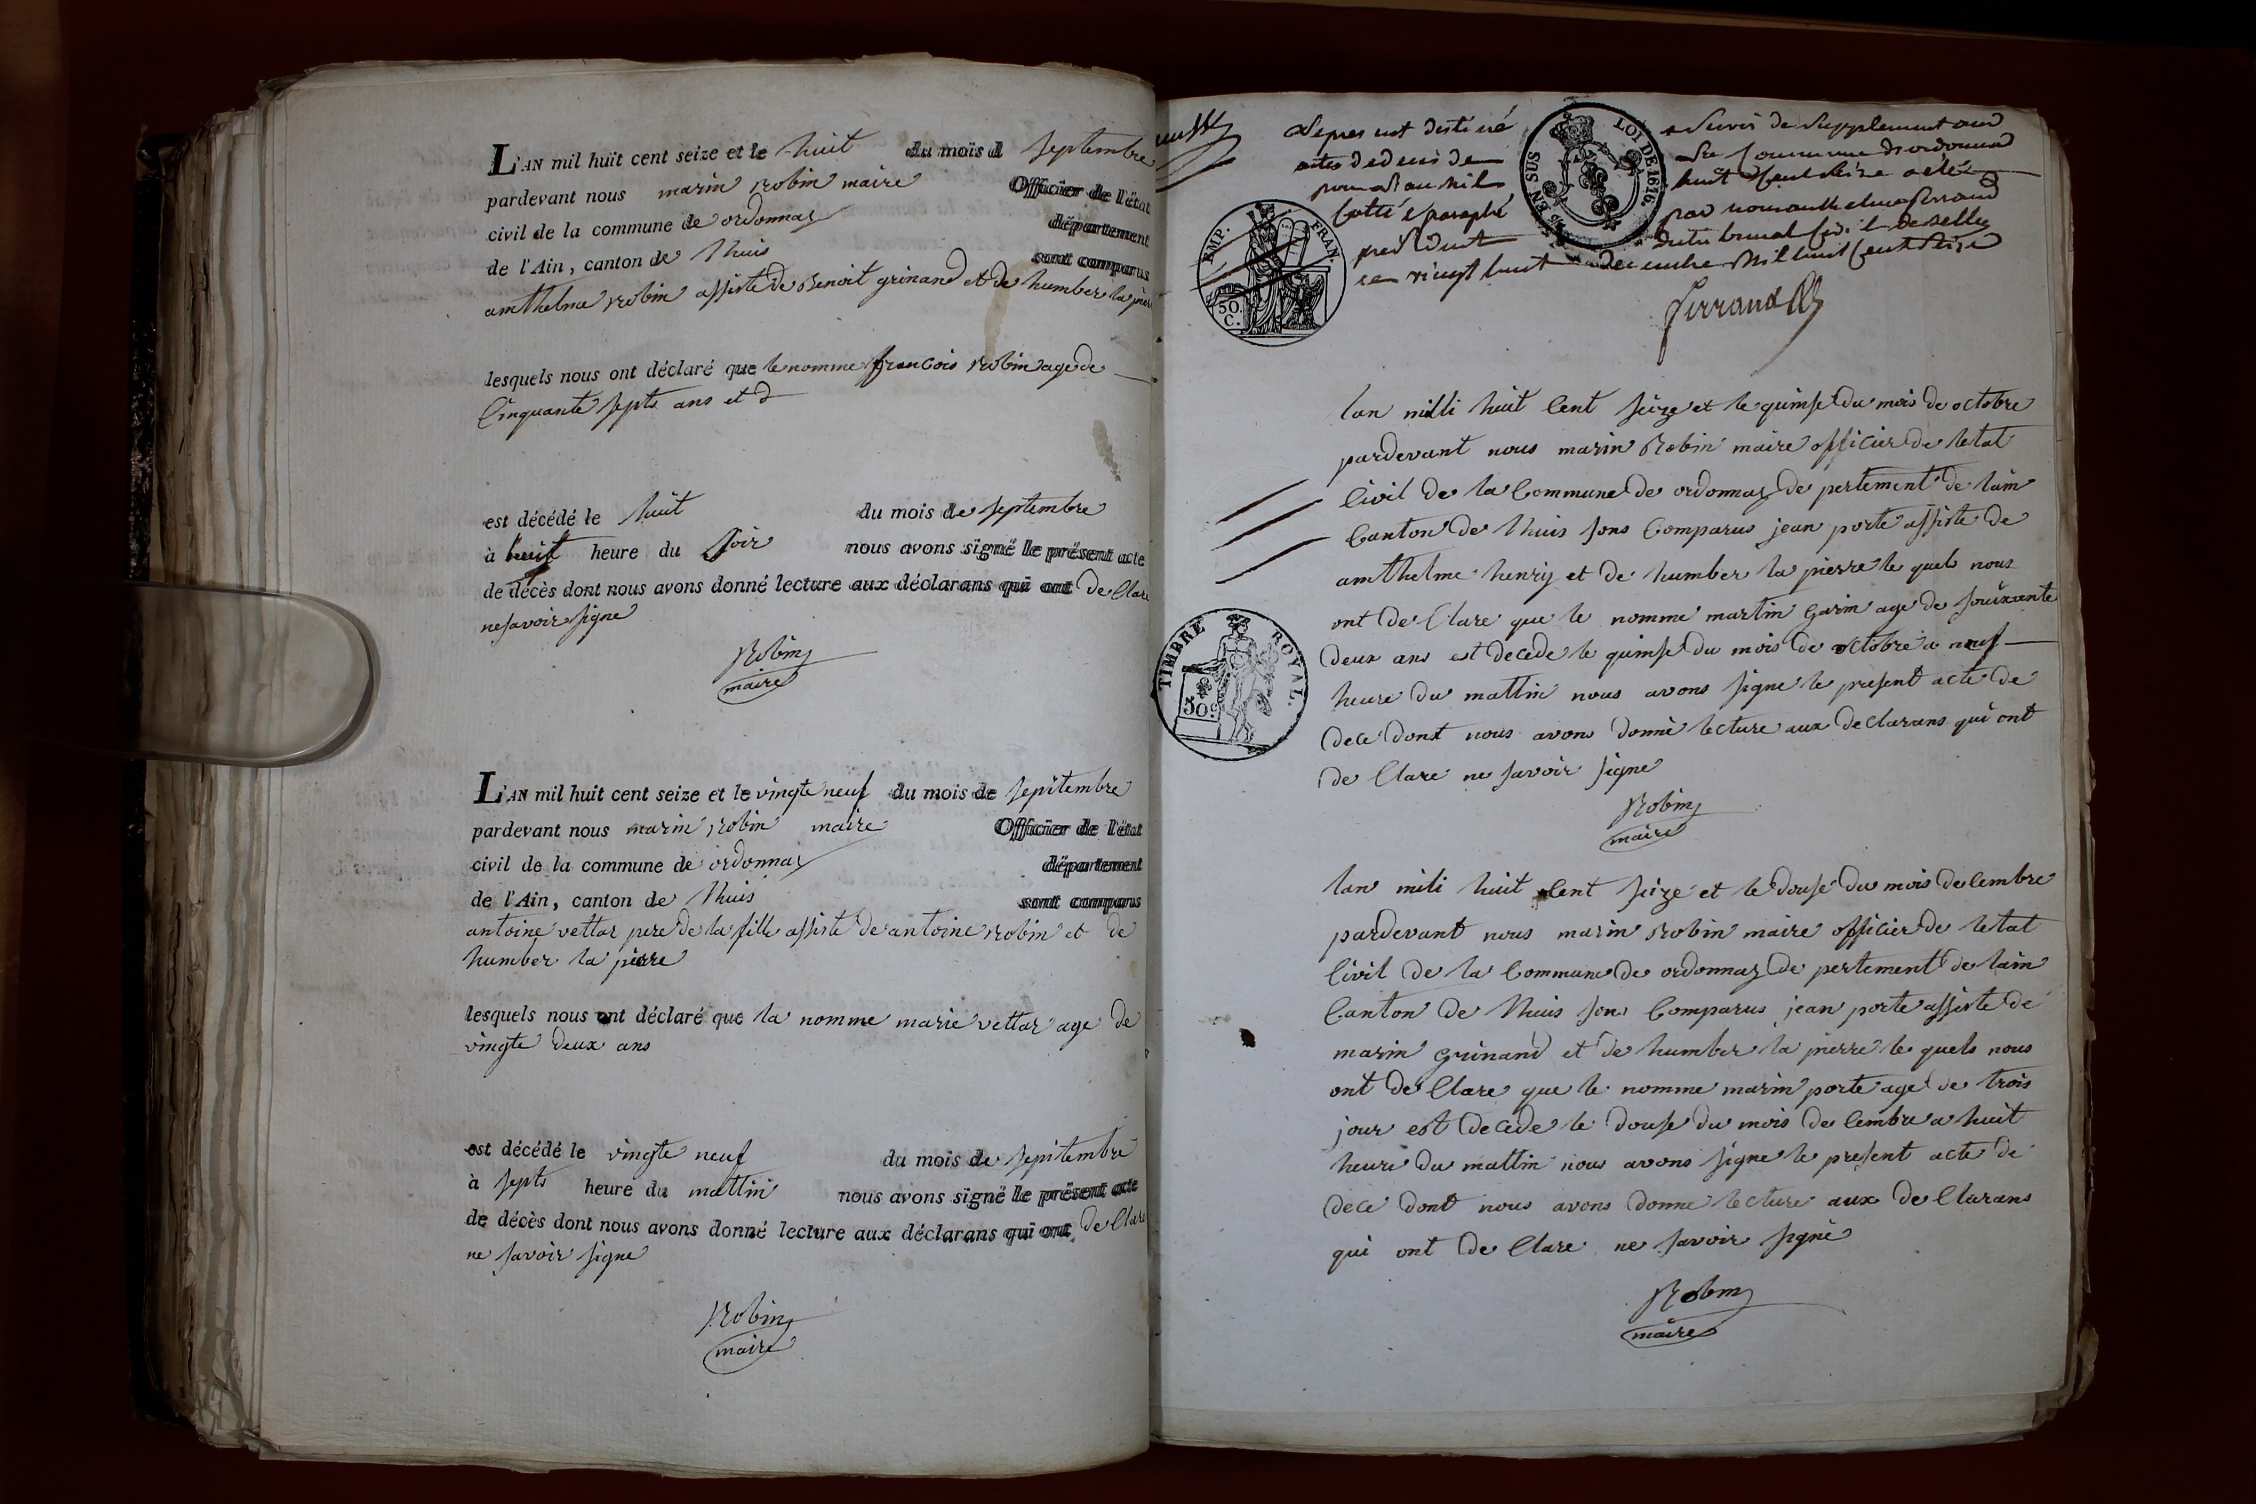 L'AN mil huit cent seize et le huit du mois d septembre
pardevant nous marin robin maire Officier de l'état
civil de la commune de ordonnaz département
de l'Ain, canton de lhuis sont comparus
amthelme robin assiste de Benoit grinand et de humber la pierre
lesquels nous ont déclaré que le nomme francois robin age de
Cinquante septs ans et d
est décédé le huit du mois de septembre
à huit heure du soir nous avons signé le présent acte
de décès dont nous avons donné lecture aux déclarans qui ont de Clare
ne savoir signe
Robin
maire
L'AN mil huit cent seize et le vingte neuf du mois de sepitembre
pardevant nous marin robin maire Officier de l'état
civil de la commune de ordonnaz département
de l'Ain, canton de lhuis sont comparus
antoine vettar pere de la fille assiste de antoine robin et de
humber la pierre
lesquels nous ont déclaré que la nomme marie vettar age de
vingte deux ans
est décédé le vingte neuf du mois de sepitembre
à septs heure du mattin nous avons signé le présent acte
de décès dont nous avons donné lecture aux déclarans qui ont de Clare
ne savoir signe
Robin
maire
Le present destiné a servir de supplement aux
actes de deces de la Commune d'ordonnaz
pour l'an mil huit Cent seize a été
cotté & paraphé par nous anthelme ferrand
president du tribunal Civil de Belley
ce vingt huit decembre Mil huit Cent seize
ferrand
EMP. FRAN.
50. C.
5 EN SUS
LOI DE 1816.
lan milli huit Cent seize et le quinse du mois de octobre
pardevant nous marin Robin maire officier de letat
Civil de la Commune de ordonnaz de pertement de lain
Canton de lhuis sons Comparus jean porte assiste de
amthelme henry et de humber la pierre le quels nous
ont de Clare que le nomme martin garin age de souixante
deux ans est decede le quinse du mois de octobre a neuf
heure du mattin nous avons signe le present acte de
dece dont nous avons donné lecture aux declarans qui ont
de Clare ne savoir signe
Robin
maire
TIMBRE ROYAL.
50c
lan mili huit Cent seize et le douse du mois decembre
pardevant nous marin robin maire officier de letat
Civil de la Commune de ordonnaz de pertement de lain
Canton de lhuis sons Comparus jean porte assiste de
marin grinand et de humber la pierre le quels nous
ont de Clare que le nomme marin porte age de trois
jour est decede le douse du mois decembre a huit
heure du mattin nous avons signe le present acte de
dece dont nous avons donne lecture aux de Clarans
qui ont de Clare ne savoir signe
Robin
maire